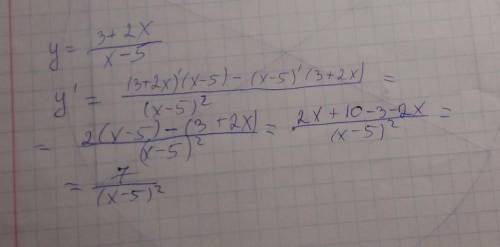 y = (3+2x)/(x-5)
y' = ((3+2x)'(x-5) - (x-5)'(3+2x))/(x-5)² =
= (2(x-5) - (3+2x))/(x-5)² = (2x+10-3-2x)/(x-5)² =
= 7/(x-5)²